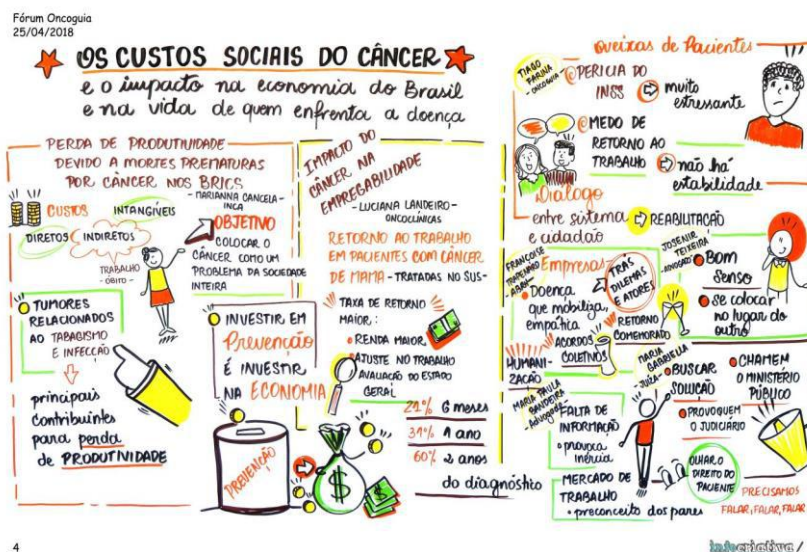 Fórum Oncoguia
25/04/2018
OS CUSTOS SOCIAIS DO CÂNCER
e o impacto na economia do Brasil
e na vida de quem enfrenta a doença
PERDA DE PRODUTIVIDADE
DEVIDO A MORTES PREMATURAS
POR CÂNCER NOS BRICS
- MARIANNA CANCELA -
INCA
CUSTOS
INTANGÍVEIS
DIRETOS
INDIRETOS
TRABALHO
- ÓBITO -
OBJETIVO
COLOCAR O
CÂNCER COMO UM
PROBLEMA DA SOCIEDADE
INTEIRA
TUMORES
RELACIONADOS
AO TABAGISMO
E INFECÇÃO
principais
contribuintes
para perda
de PRODUTIVIDADE
INVESTIR EM
Prevenção
É INVESTIR
NA ECONOMIA
PREVENÇÃO
IMPACTO DO
CÂNCER NA
EMPREGABILIDADE
- LUCIANA LANDEIRO -
ONCOCLÍNICAS
RETORNO AO TRABALHO
EM PACIENTES COM CÂNCER
DE MAMA - TRATADAS NO SUS -
TAXA DE RETORNO
MAIOR:
RENDA MAIOR
AJUSTE NO TRABALHO
AVALIAÇÃO DO ESTADO
GERAL
21% 6 meses
31% 1 ano
60% 2 anos
do diagnóstico
$
Queixas de Pacientes
TIAGO
FARINA
- ONCOGUIA -
PERICIA DO
INSS
muito
estressante
MEDO DE
RETORNO AO
TRABALHO
não há
estabilidade
Diálogo
entre sistema
e cidadão
REABILITAÇÃO
FRANÇOISE
TRAPENARD
- ABRH -
Empresas
Doença
que mobiliza,
empática
TRÁS
DILEMAS
E ATORES
RETORNO
COMEMORADO
ACORDOS
COLETIVOS
HUMANI-
ZAÇÃO
JOSENIR
TEIXEIRA
- ADVOGADO -
Bom
senso
se colocar
no lugar do
outro
MARIA PAULA
BANDEIRA
- Advogada -
FALTA DE
INFORMAÇÃO
provoca
inércia
MERCADO DE
TRABALHO
preconceito dos pares
MARIA
GABRIELLA
- JUÍZA -
BUSCAR
SOLUÇÃO
CHAMEM
O MINISTÉRIO
PÚBLICO
PROVOQUEM
O JUDICIÁRIO
OLHAR O
DIREITO DO
PACIENTE
PRECISAMOS
FALAR, FALAR, FALAR
4
infocriativa